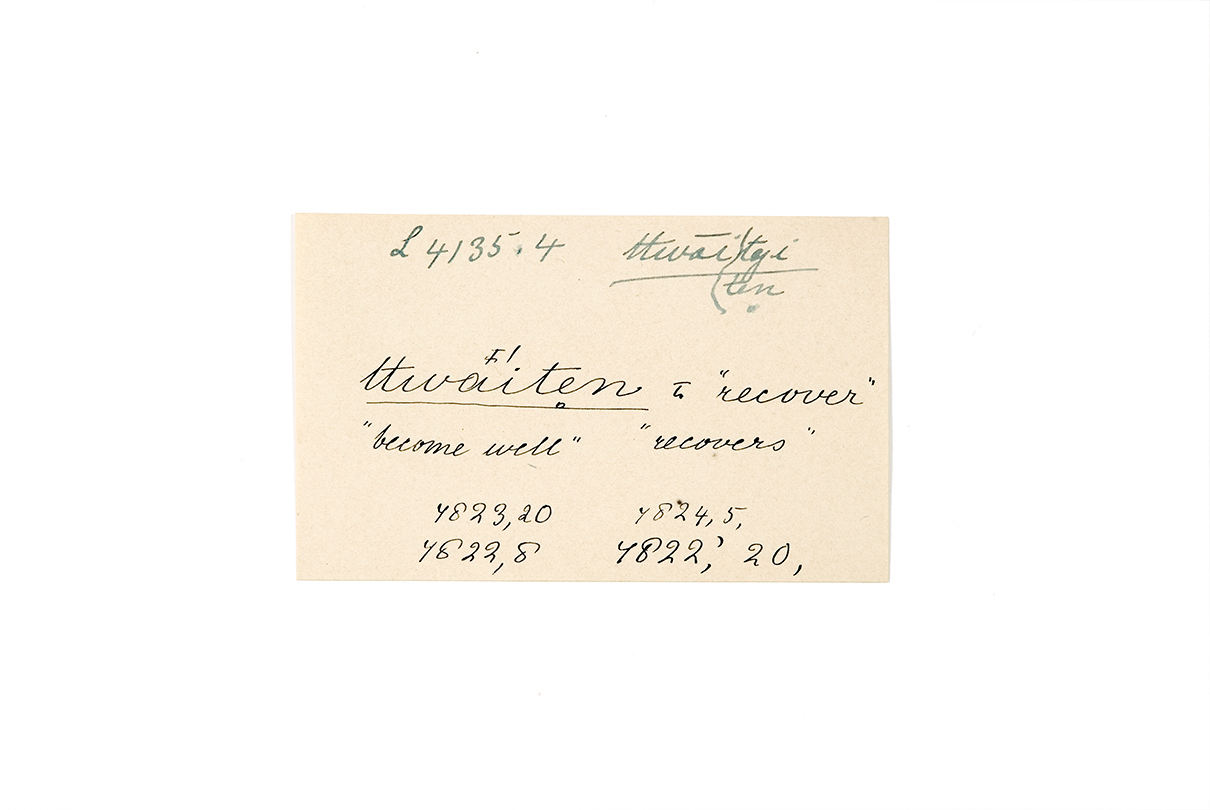 L 4135.4 ttwāi)tyi
(ten
ttwāiten to "recover"
"become well" "recovers"
4823,20 4824,5,
4822,8 4822, 20,